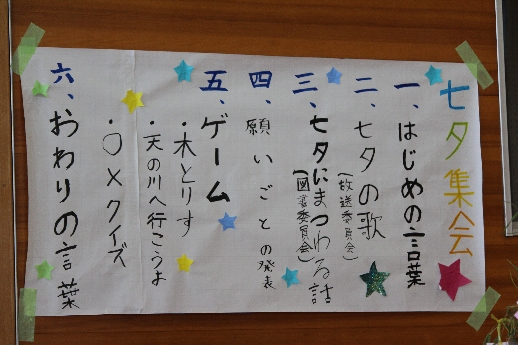 七夕集会
一、はじめの言葉
二、七夕の歌
(放送委員会)
三、七夕にまつわる話
(図書委員会)
四、願いごとの発表
五、ゲーム
・木とりす
・天の川へ行こうよ
・○×クイズ
六、おわりの言葉